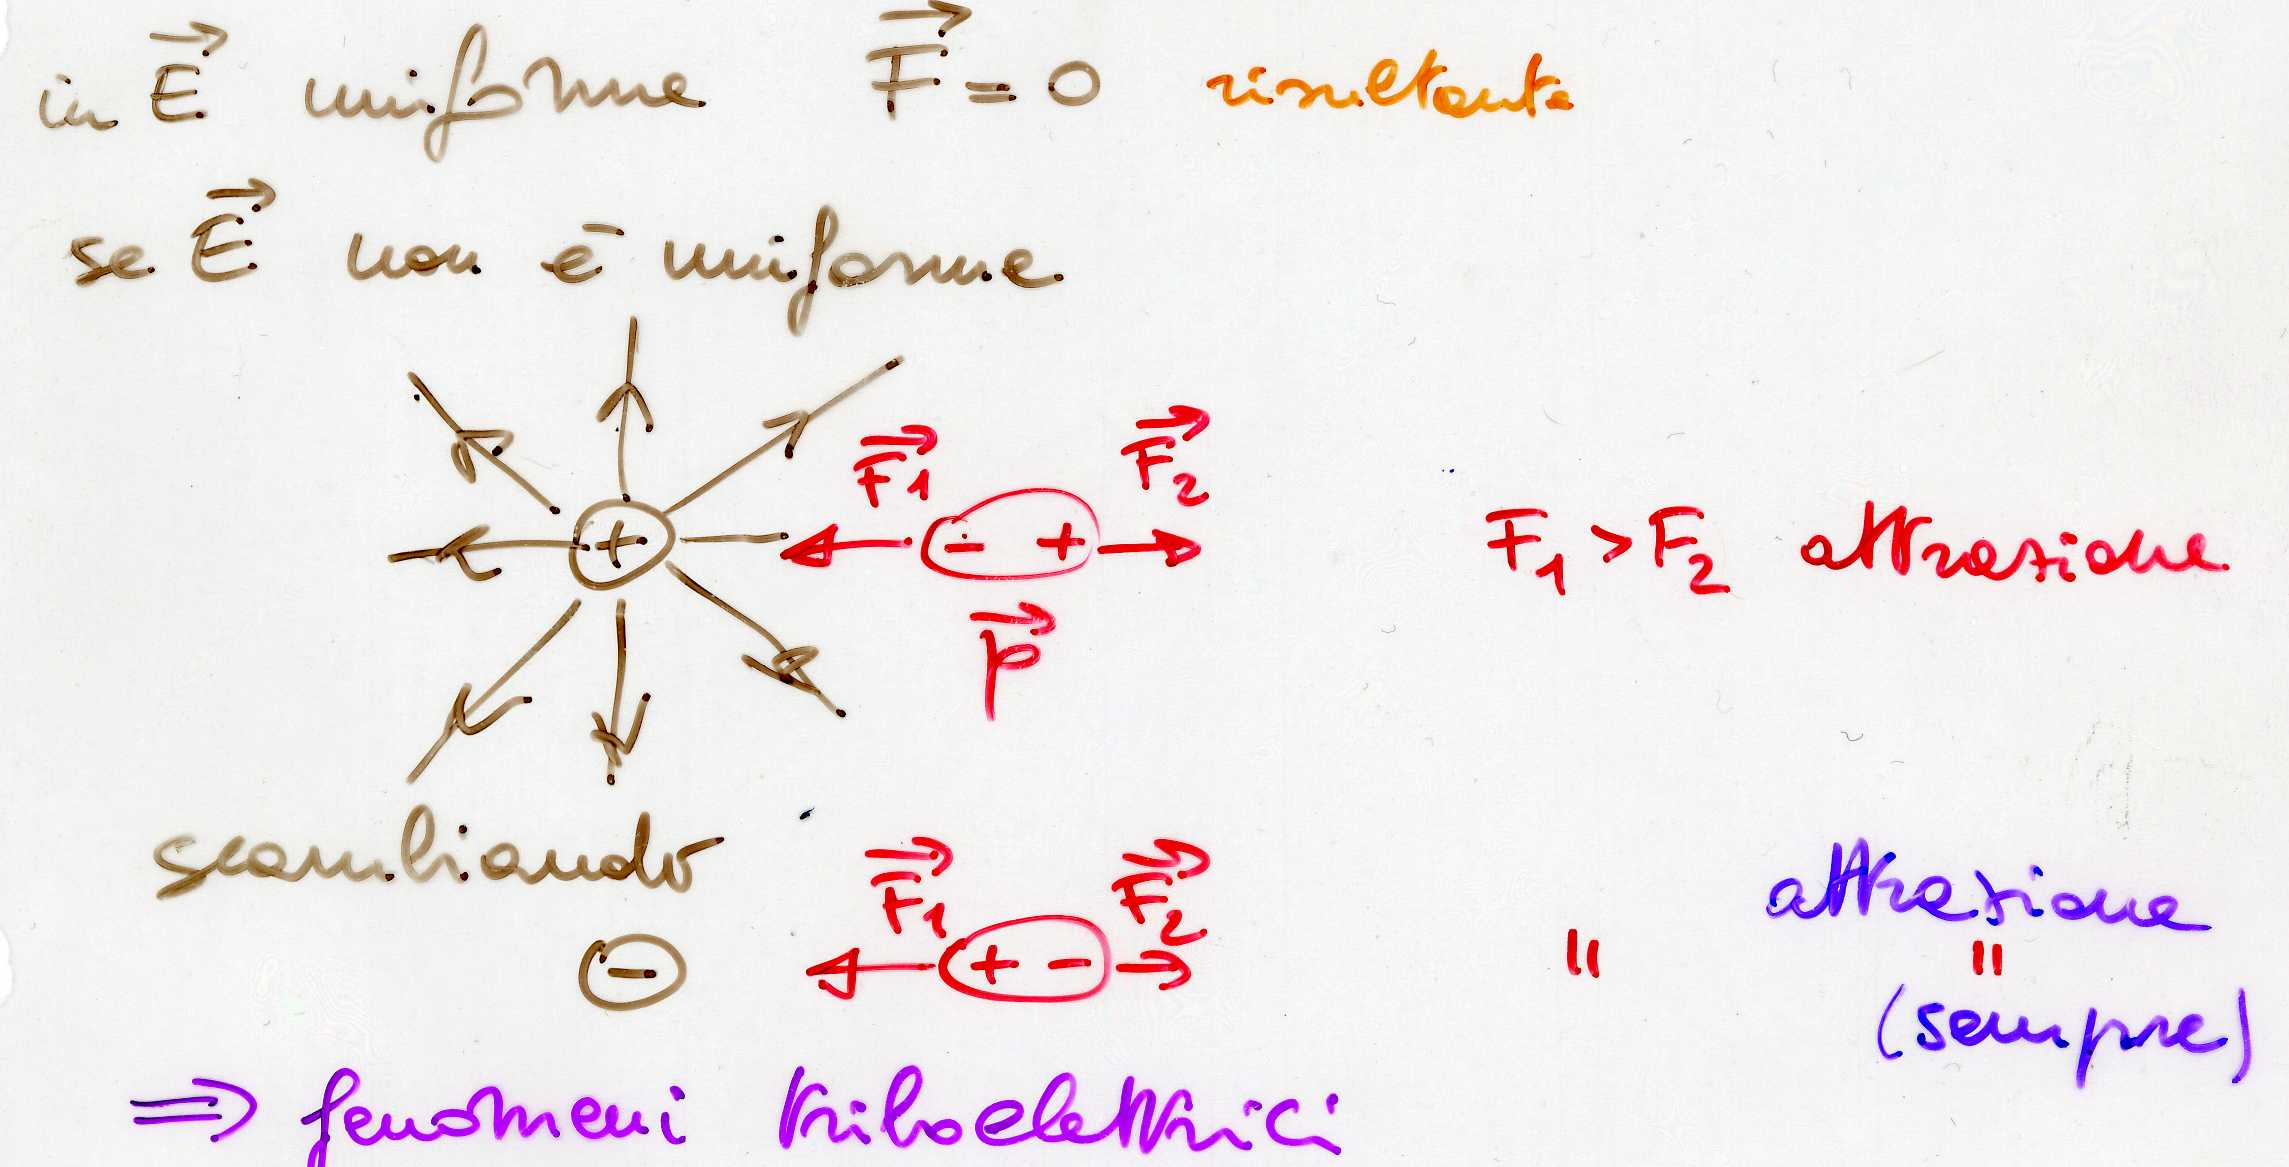 in E⃗ uniforme F⃗ = 0 risultante
se E⃗ non è uniforme
F⃗₁ F⃗₂
+ - + F₁ > F₂ attrazione
p⃗
scambiando
F⃗₁ F⃗₂ attrazione
- + - " "
(sempre)
⇒ fenomeni triboelettrici